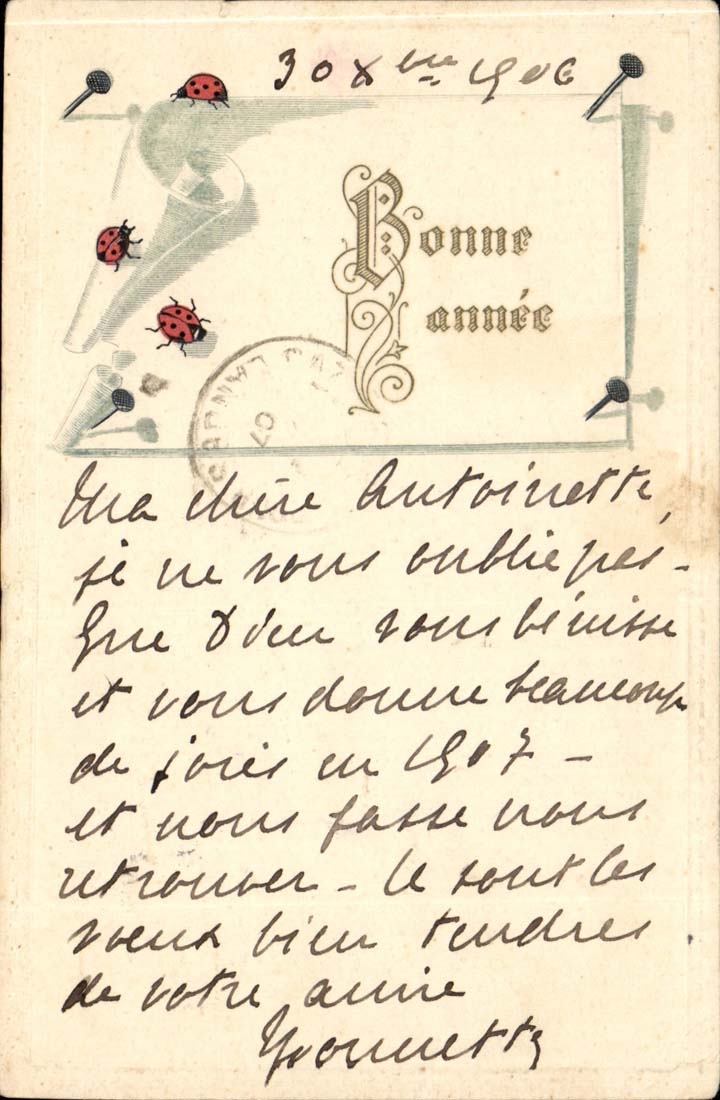 30 Xbre 1906
Bonne
année
07
Ma chère Antoinette,
je ne vous oublie pas -
Que Dieu vous bénisse
et vous donne beaucoup
de joies en 1907 -
et nous fasse nous
retrouver - Ce sont les
vœux bien tendres
de votre amie
Yvonnette